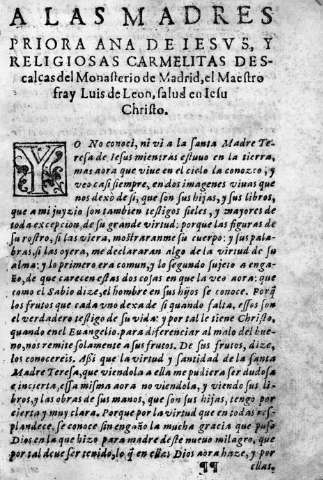 A LAS MADRES
PRIORA ANA DE IESVS, Y
RELIGIOSAS CARMELITAS DES-
calças del Monasterio de Madrid, el Maestro
fray Luis de Leon, salud en Iesu
Christo.
YO No conoci, ni vi a la santa Madre Te-
resa de Iesus mientras estuuo en la tierra,
mas aora que viue en el cielo la conozco, y
veo casi siempre, en dos imagenes viuas que
nos dexo de si, que son sus hijas, y sus libros,
que a mi juyzio son tambien testigos fieles, y mayores de
toda excepcion, de su grande virtud: porque las figuras de
su rostro, si las viera, mostraranme su cuerpo: y sus pala-
bras, si las oyera, me declararan algo de la virtud de su
alma: y lo primero era comun, y lo segundo sujeto a enga-
ño, de que carecen estas dos cosas en que la veo aora: que
como el Sabio dize, el hombre en sus hijos se conoce. Porq̃
los frutos que cada vno dexa de si quando falta, essos son
el verdadero testigo de su vida: y por tal le tiene Christo,
quando en el Euangelio, para diferenciar al malo del bue-
no, nos remite solamente a sus frutos. De sus frutos, dize,
los conocereis. Assi que la virtud y santidad de la santa
Madre Teresa, que viendola a ella me pudiera ser dudosa
e incierta, essa misma aora no viendola, y viendo sus li-
bros, y las obras de sus manos, que son sus hijas, tengo por
cierta y muy clara. Porque por la virtud que en todas res-
plandece, se conoce sin engaño la mucha gracia que puso
Dios en la que hizo para madre deste nueuo milagro, que
por tal deue ser tenido, lo q̃ en ellas Dios aora haze, y por
¶¶ ellas.